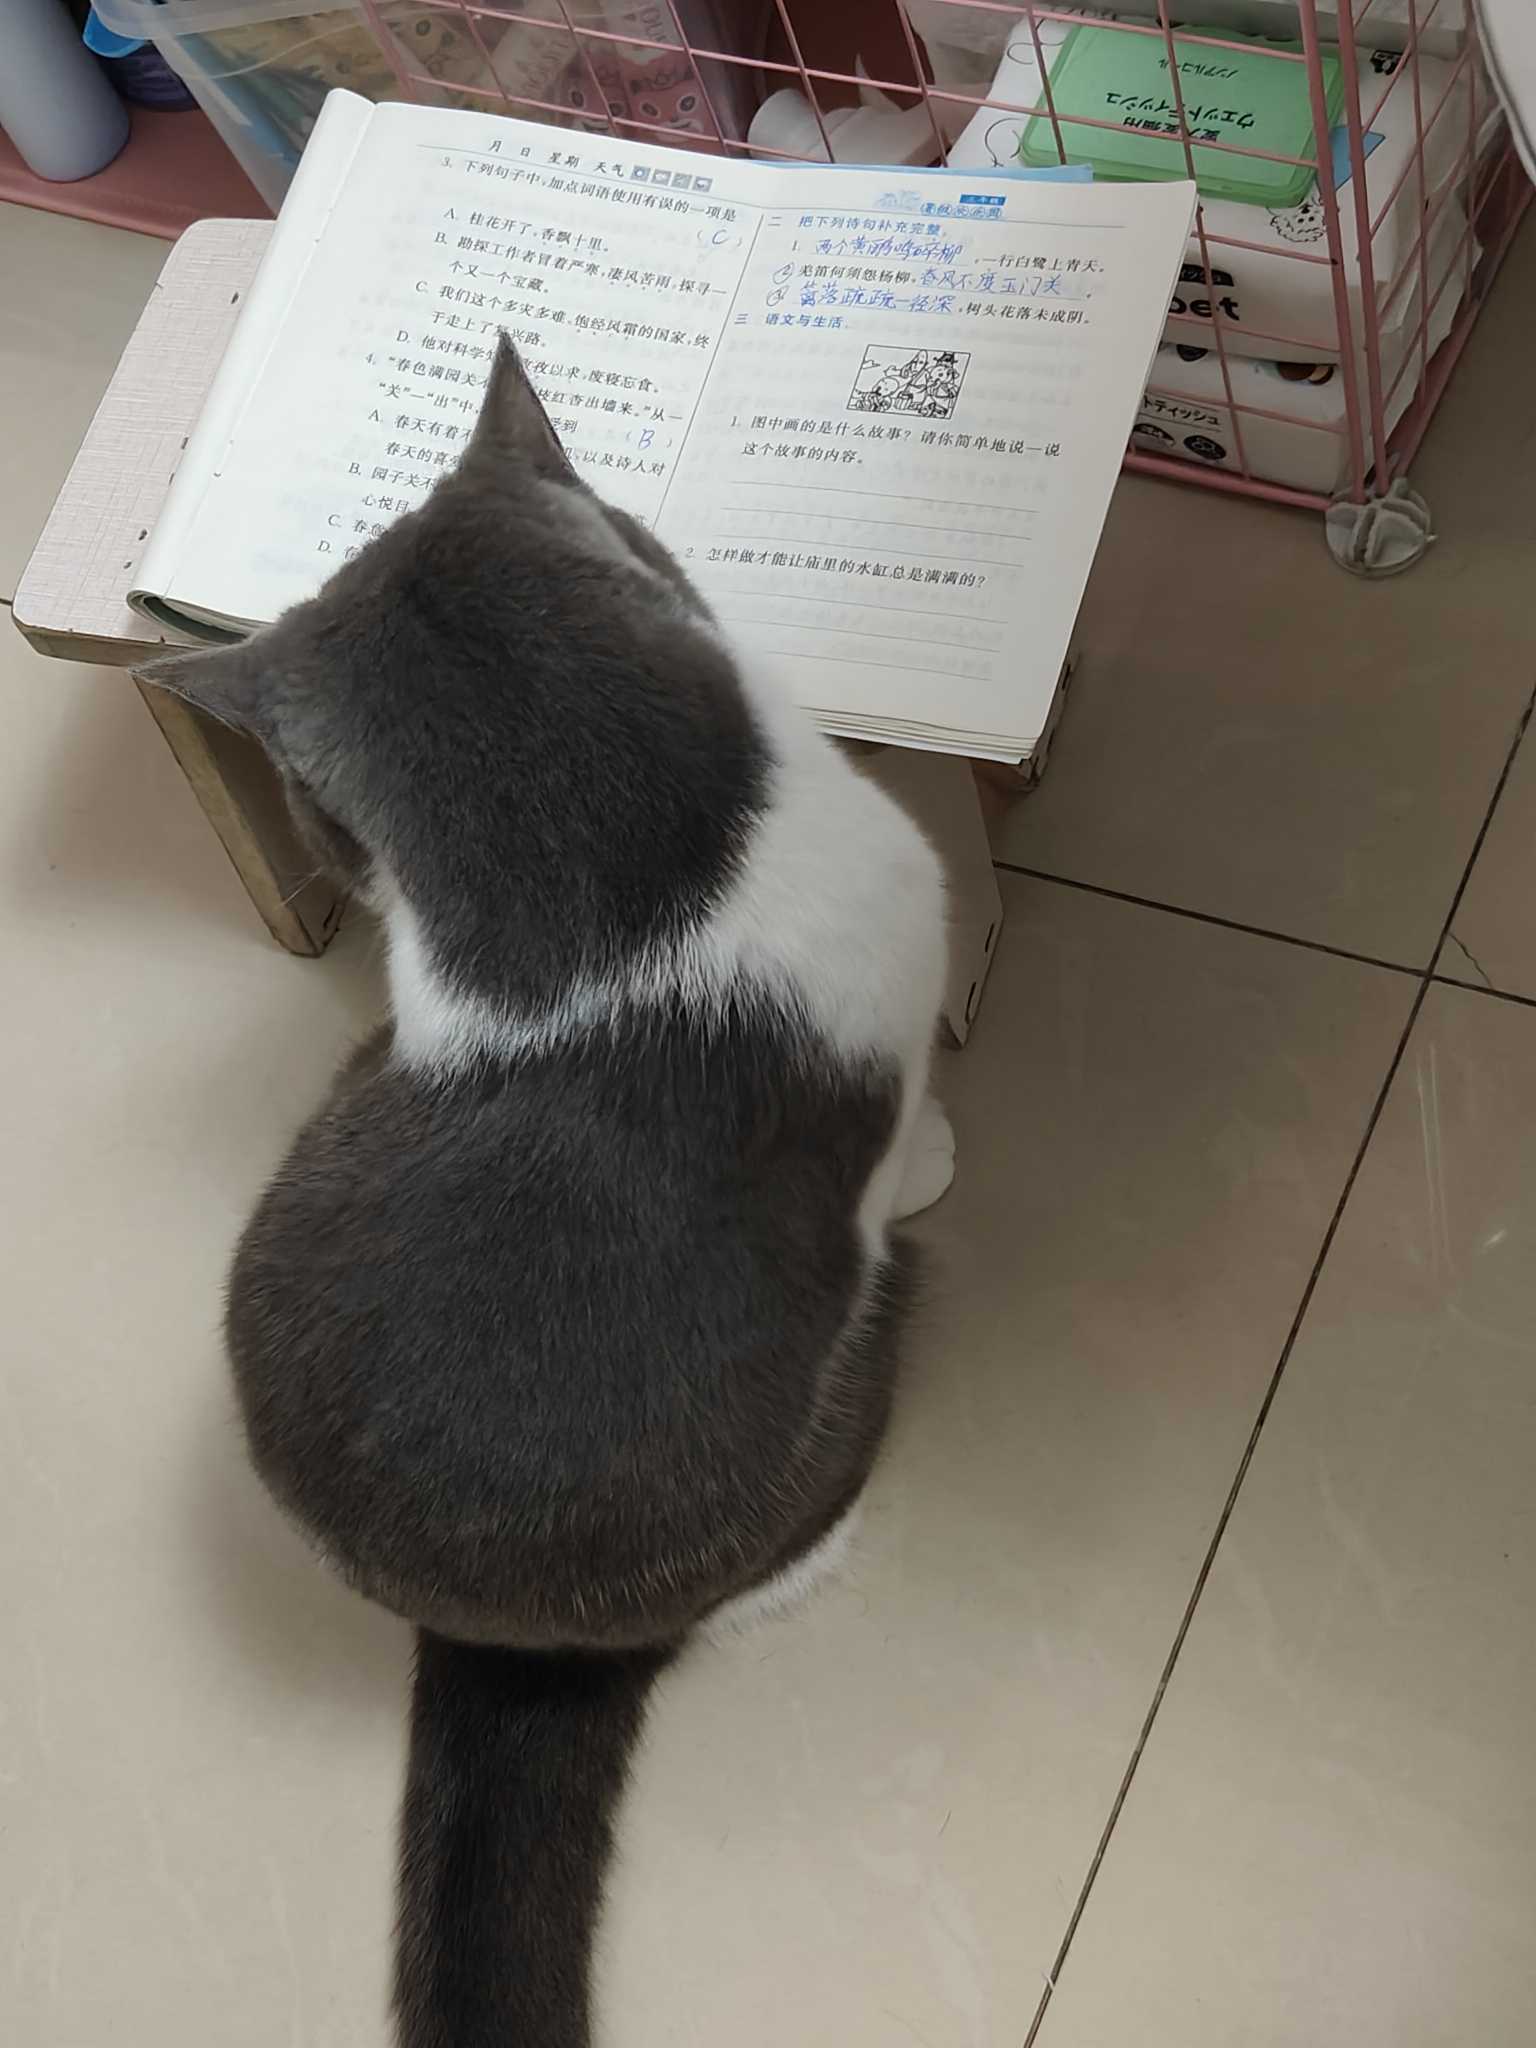 月 日 星期 天气
3. 下列句子中,加点词语使用有误的一项是
(C)
A. 桂花开了,香飘十里。
B. 勘探工作者冒着严寒,凄风苦雨,探寻一
个又一个宝藏。
C. 我们这个多灾多难、饱经风霜的国家,终
于走上了复兴路。
D. 他对科学 孜以求,废寝忘食。
4. “春色满园关不 枝红杏出墙来。”从一
“关”一“出”中, 受到
(B)
A. 春天有着不
春天的喜 以及诗人对
B. 园子关不
心悦目
C. 春意
D. 春
三年级
二 把下列诗句补充完整。
1. 两个黄鹂鸣碎柳,一行白鹭上青天。
2 羌笛何须怨杨柳,春风不度玉门关。
3 篱落疏疏一径深,树头花落未成阴。
三 语文与生活。
1. 图中画的是什么故事?请你简单地说一说
这个故事的内容。
2. 怎样做才能让庙里的水缸总是满满的?
ノンアルコール
ウェットティッシュ
愛犬愛猫用
ティッシュ
pet
トティッシュ